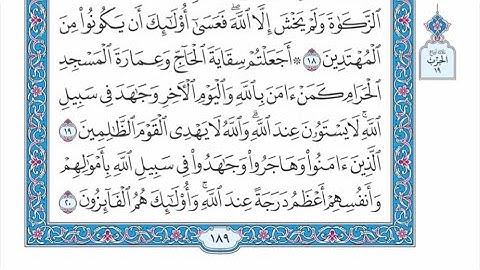 الزَّكَوٰةَ وَلَمْ يَخْشَ إِلَّا اللَّهَ ۖ فَعَسَىٰٓ أُو۟لَـٰٓئِكَ أَن يَكُونُوا۟ مِنَ
الْمُهْتَدِينَ ١٨ ۞ أَجَعَلْتُمْ سِقَايَةَ الْحَآجِّ وَعِمَارَةَ الْمَسْجِدِ
الْحَرَامِ كَمَنْ ءَامَنَ بِاللَّهِ وَالْيَوْمِ الْـَٔاخِرِ وَجَـٰهَدَ فِى سَبِيلِ
اللَّهِ ۚ لَا يَسْتَوُۥنَ عِندَ اللَّهِ ۗ وَاللَّهُ لَا يَهْدِى الْقَوْمَ الظَّـٰلِمِينَ ١٩
الَّذِينَ ءَامَنُوا۟ وَهَاجَرُوا۟ وَجَـٰهَدُوا۟ فِى سَبِيلِ اللَّهِ بِأَمْوَٰلِهِمْ
وَأَنفُسِهِمْ أَعْظَمُ دَرَجَةً عِندَ اللَّهِ ۚ وَأُو۟لَـٰٓئِكَ هُمُ الْفَآئِزُونَ ٢٠
١٨٩
الحزب
١٩